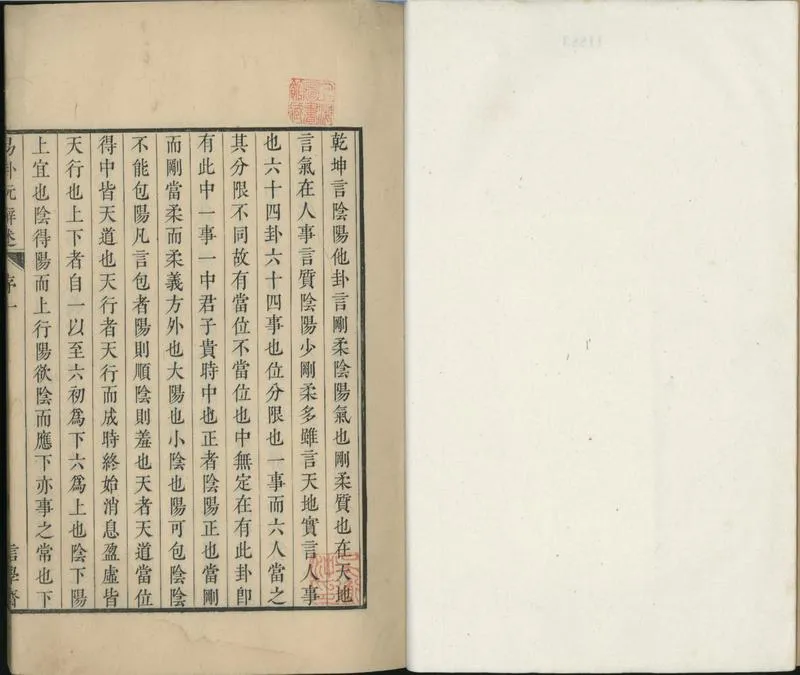 乾坤言陰陽他卦言剛柔陰陽氣也剛柔質也在天地
言氣在人事言質陰陽少剛柔多雖言天地實言人事
也六十四卦六十四事也位分限也一事而六人當之
其分限不同故有當位不當位也中無定在有此卦卽
有此中一事一中君子貴時中也正者陰陽正也當剛
而剛當柔而柔義方外也大陽也小陰也陽可包陰陰
不能包陽凡言包者陽則順陰則羞也天者天道當位
得中皆天道也天行者天行而成時終始消息盈虛皆
天行也上下者自一以至六初爲下六爲上也陰下陽
上宜也陰得陽而上行陽欲陰而應下亦事之常也下
易卦玩辭述 序 一 言學齋